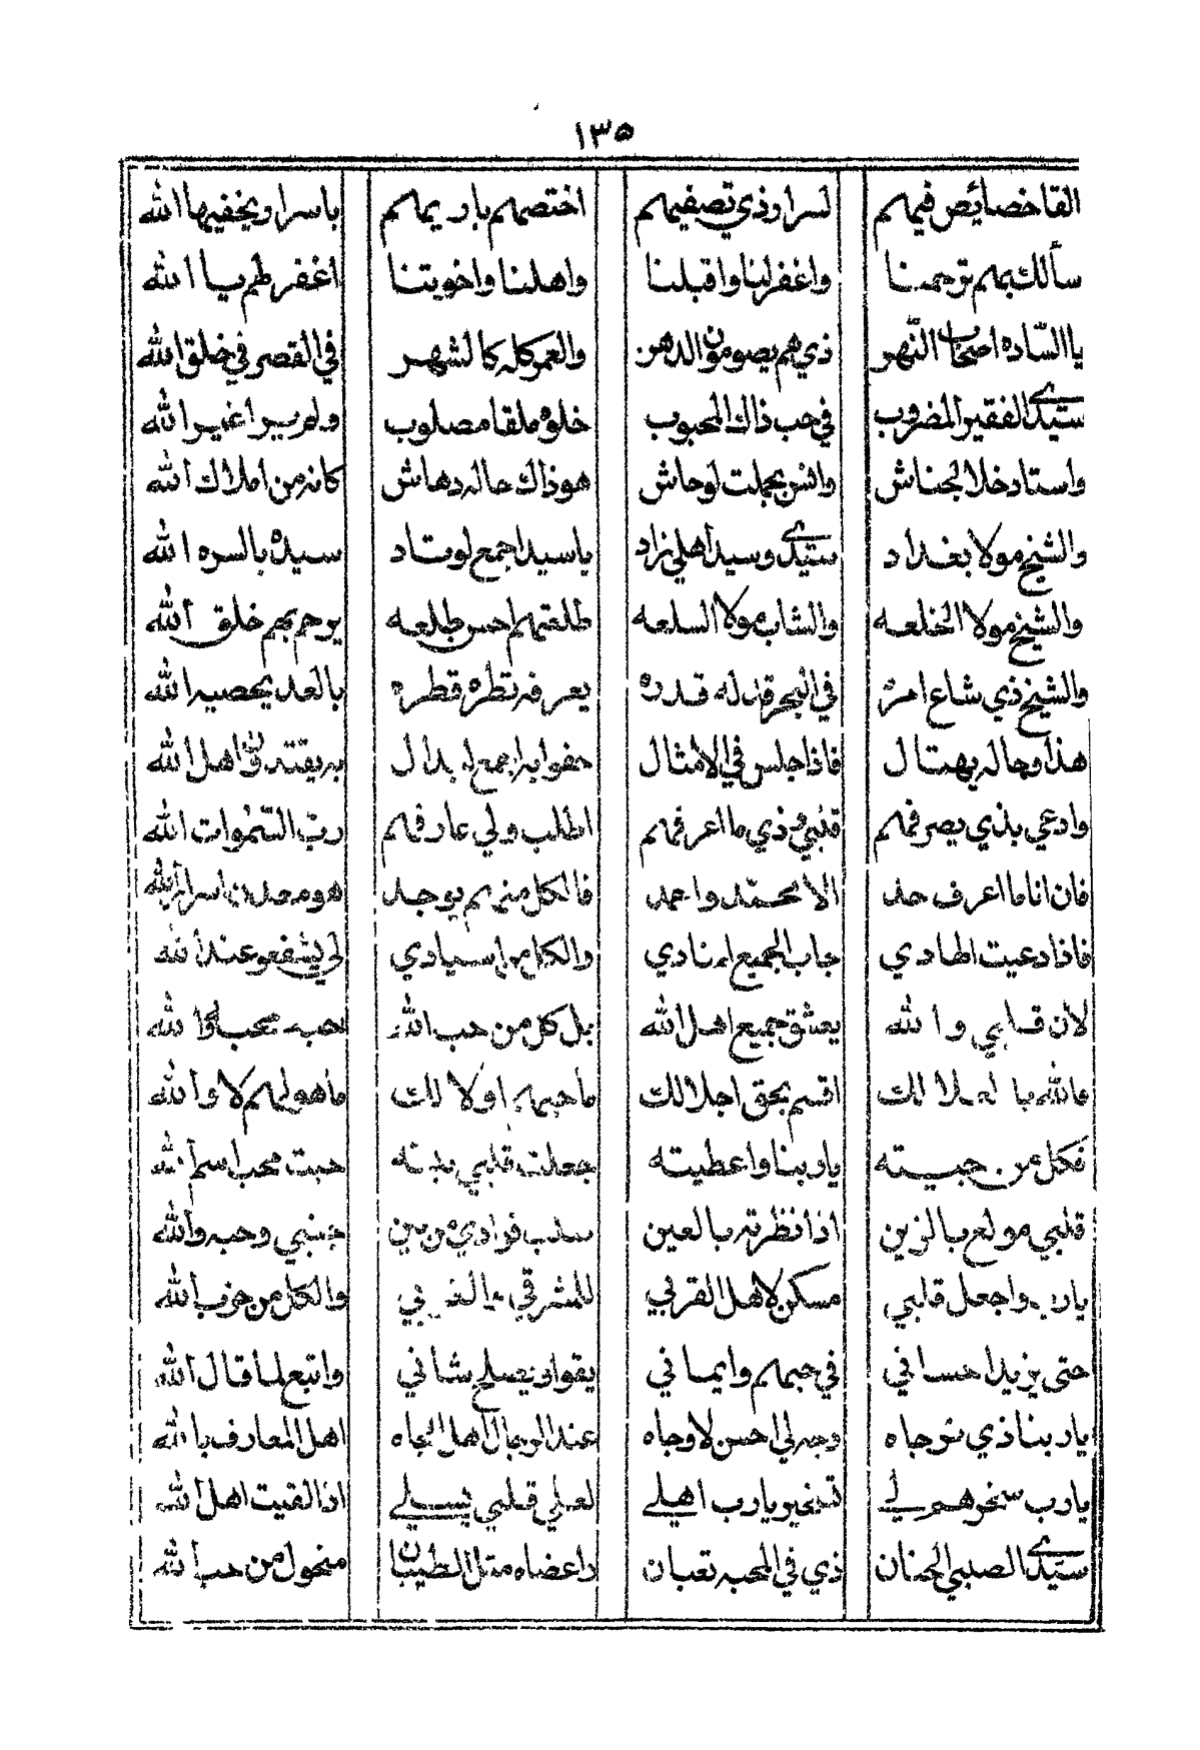 ١٣٥
القا خصائص فيهم لسرار وذي تصفيهم اختصهم بار يهم باسرار ويخفيها الله
سألك بهم ترحمنا واغفر لنا واقبلنا واهلنا واخويتنا اغفر لهم يا الله
يا السّاده اصحاب النّهر ذي هم يصومون الدهر والعمر كله كالشهر في القصر في خلق الله
سيّدي الفقير المضروب في حب ذاك المحبوب خلوه ملقا مصلوب ولم يرا غير الله
واستاد خلا لجناش وانس بجملت لوحاش هو ذاك حاله دهاش كانه من املاك الله
والشيخ مولا بغداد سيّدي وسيد أهلي زاد يا سيد اجمع لوتاد سيده بالسره الله
والشيخ مولا الخلعه والشاب مولا السلعه طلعتهم احسن طلعه يرحم بهم خلق الله
والشيخ ذي شاع امره في البحر قد له قدره يعرفه نظره قطره بالعد يحصيه الله
هذا وحاله يهتال فاذا جلس في الامثال حفوا به اجمع لبدال به يقتدون اهل الله
وادعي بذي يصرفهم قلبي وذي ما اعرفهم اطلب ولي عارفهم ربّ السّموات الله
فان انا ما اعرف حد الا محمّد واحمد فالكل منهم يوجد هو معدن اسرار الله
فاذا دعيت الهادي جاب الجميع لمنادي والكل من اسيادي لي يشفعو عند الله
لان قلبي والله يعشق جميع اهل الله بل كل من حب الله حب محب والله
مالله يا لك اقسم بحق اجلالك ما حبهم اولا لك ما هو لهم لا والله
فكل من حبيته يا ربنا واعطيته جعلت قلبي بيته حبت محب اسم الله
قلبي مولع بالزين اذا نظرته بالعين سلب فوادي من بين جنبي وحبه والله
يارب واجعل قلبي مسكن لاهل القربي للمشرقي والغربي والكل من حزب الله
حتى يزيد احساني في حبهم وايماني يقوا ويصلح شاني واتبع لما قال الله
يا ربنا ذي نرجاه وجه لي احسن لاوجاه عند الرجال اهل الجاه اهل المعارف بالله
يارب سخرهم لي تدخير يارب اهيلي لعلي قلبي يسلي اذا لقيت اهل الله
سيّدي الصبي الحنان ذي في المحبه تعبان داعضاه متل الطيبان منحول من حب الله